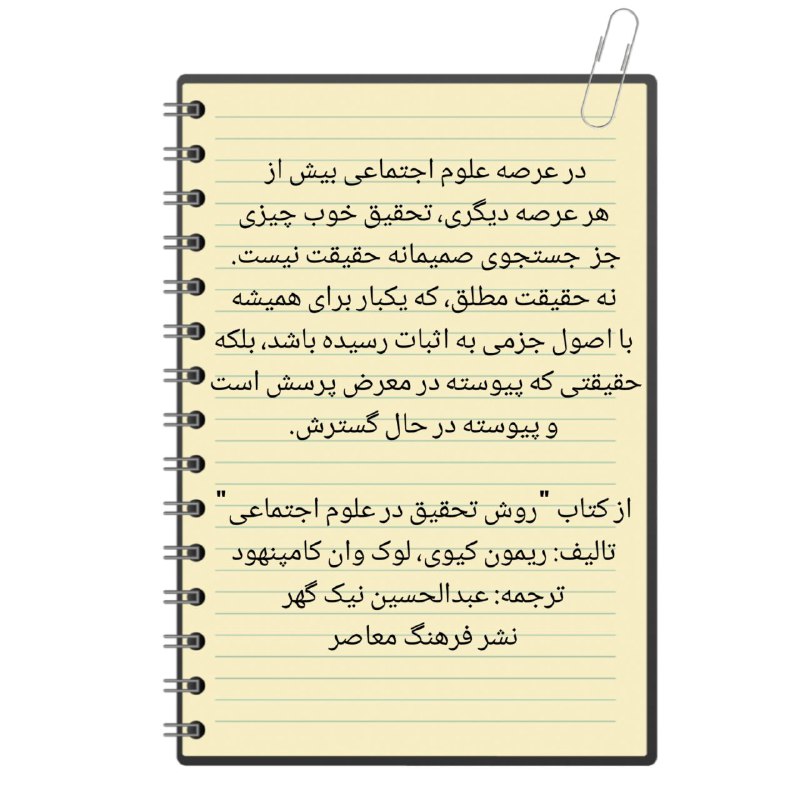 در عرصه علوم اجتماعی بیش از
هر عرصه دیگری، تحقیق خوب چیزی
جز جستجوی صمیمانه حقیقت نیست.
نه حقیقت مطلق، که یکبار برای همیشه
با اصول جزمی به اثبات رسیده باشد، بلکه
حقیقتی که پیوسته در معرض پرسش است
و پیوسته در حال گسترش.
از کتاب "روش تحقیق در علوم اجتماعی"
تالیف: ریمون کیوی، لوک وان کامپنهود
ترجمه: عبدالحسین نیک گهر
نشر فرهنگ معاصر